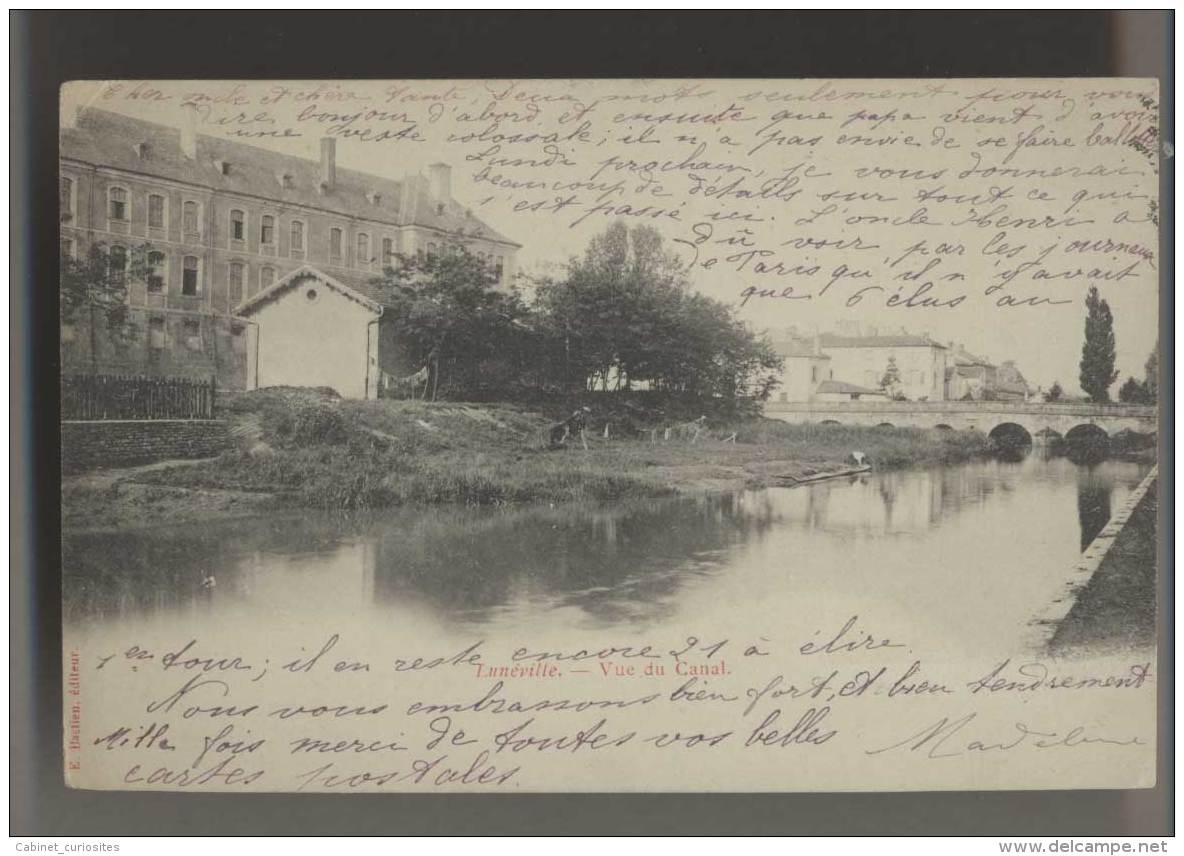 Cher oncle et chère tante, Deux mots seulement pour vous
dire bonjour d'abord, et ensuite que papa vient d'avoir
une veste colossale; il n'a pas envie de se faire ballot
Lundi prochain, je vous donnerai
beaucoup de détails sur tout ce qui
s'est passé ici. L'oncle Henri a
dû voir, par les journaux
de Paris qu'il n'y avait
que 6 élus au
1er tour; il en reste encore 21 à élire.
Lunéville. — Vue du Canal.
Nous vous embrassons bien fort, et bien tendrement
Mille fois merci de toutes vos belles
cartes postales.
Madeleine
E. Bastien, éditeur.
Cabinet_curiosites
www.delcampe.net